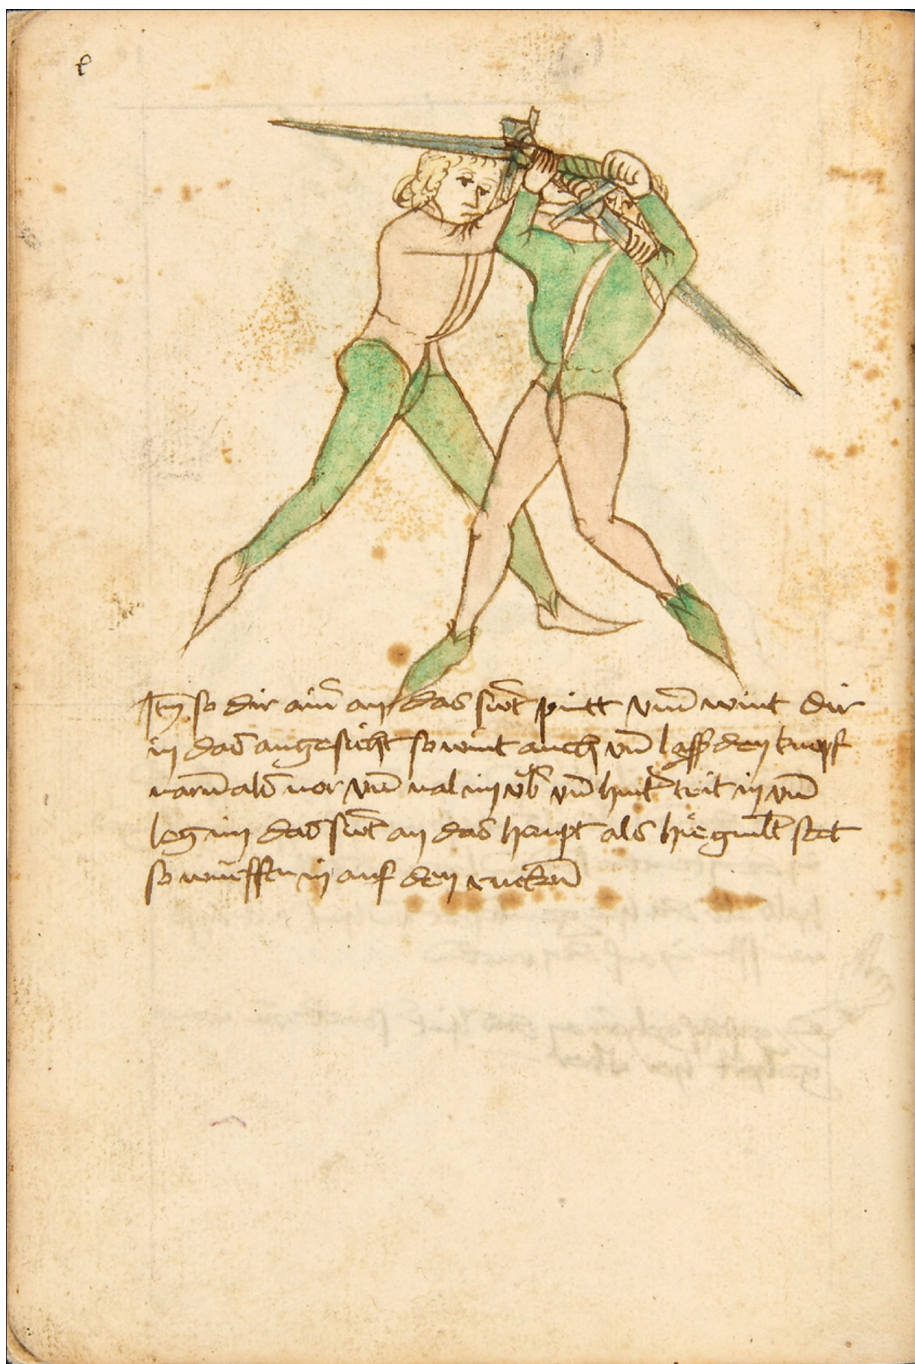 e
Itm̄ so dir ain̄ an das sw̄t pintt vnd̄ wint dir
in das angesicht so wint auch vn̄ lasß den knopf
varn̄ als vor vnd̄ val im vb̄ vn̄ hint̄ trit in vnd̄
leg im das sw̄t an das haupt als hie gmalt stet
so wurffstu in auf den rucken̄